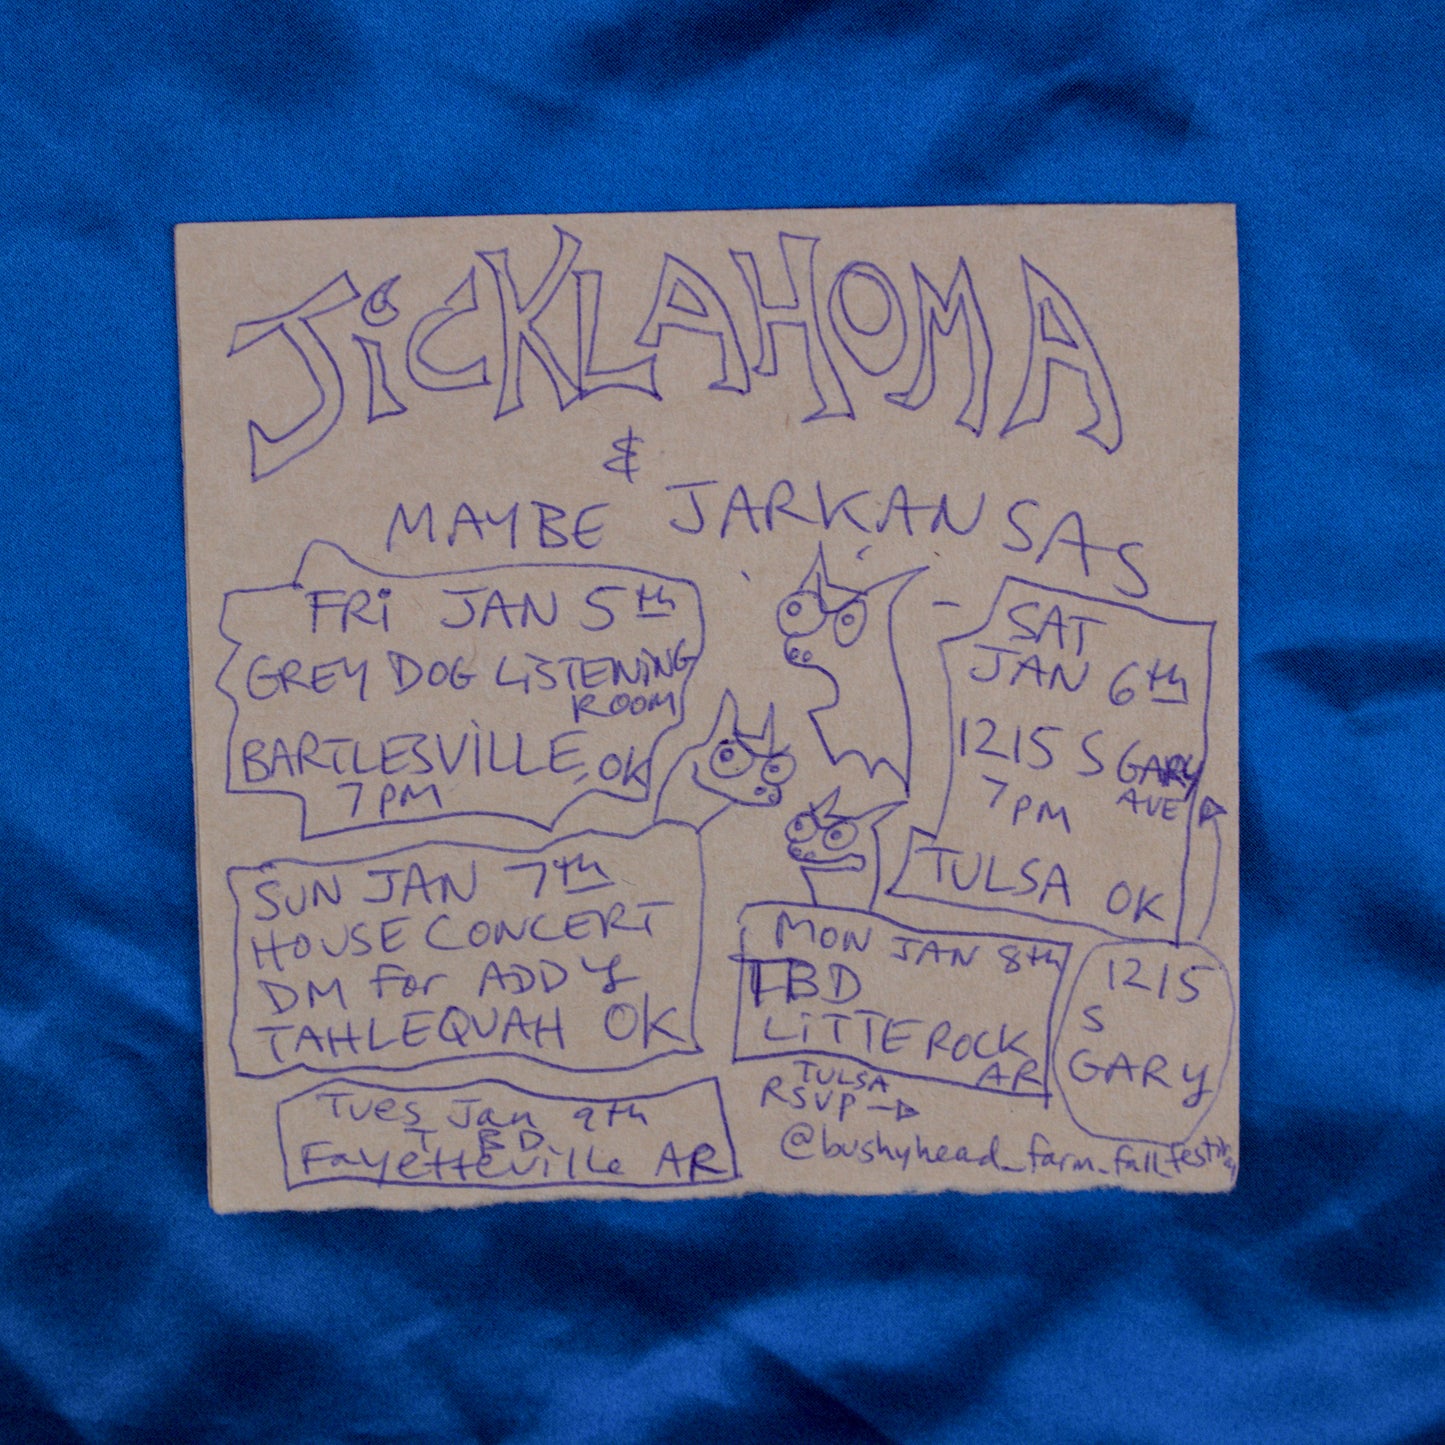 JiCKLAHOMA
&
MAYBE JARKANSAS
FRi JAN 5th
GREY DOG LiSTENiNG
ROOM
BARTLESViLLE, OK
7 PM
SAT
JAN 6th
1215 S GARY
AVE
7 PM
TULSA OK
SUN JAN 7th
HOUSE CONCERT
DM For ADDY
TAHLEQUAH OK
MON JAN 8th
TBD
LiTTE ROCK
AR
1215
S
GARY
Tues Jan 9th
TBD
Fayetteville AR
TULSA
RSVP →
@bushyhead_farm_fall_festing